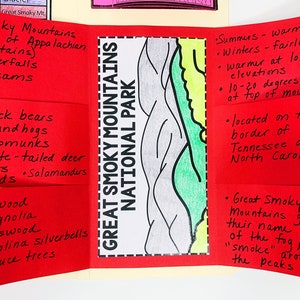 Great Smoky M
ky Mountains
of Appalachian
tains)
erfalls
ams
ck bears
undhogs
pmunks
te-tailed deer
ds • Salamanders
wood
gnolia
swood
olina silverbells
uce trees
GREAT SMOKY MOUNTAINS
NATIONAL PARK
• Summers - warm
• Winters - fairl
• warmer at lo
elevations
• 10-20 degrees
at top of mou
• located on t
border of
Tennessee a
North Caroli
• Great Smoky
Mountains
their name
of the fog
"smoke" arou
the peaks